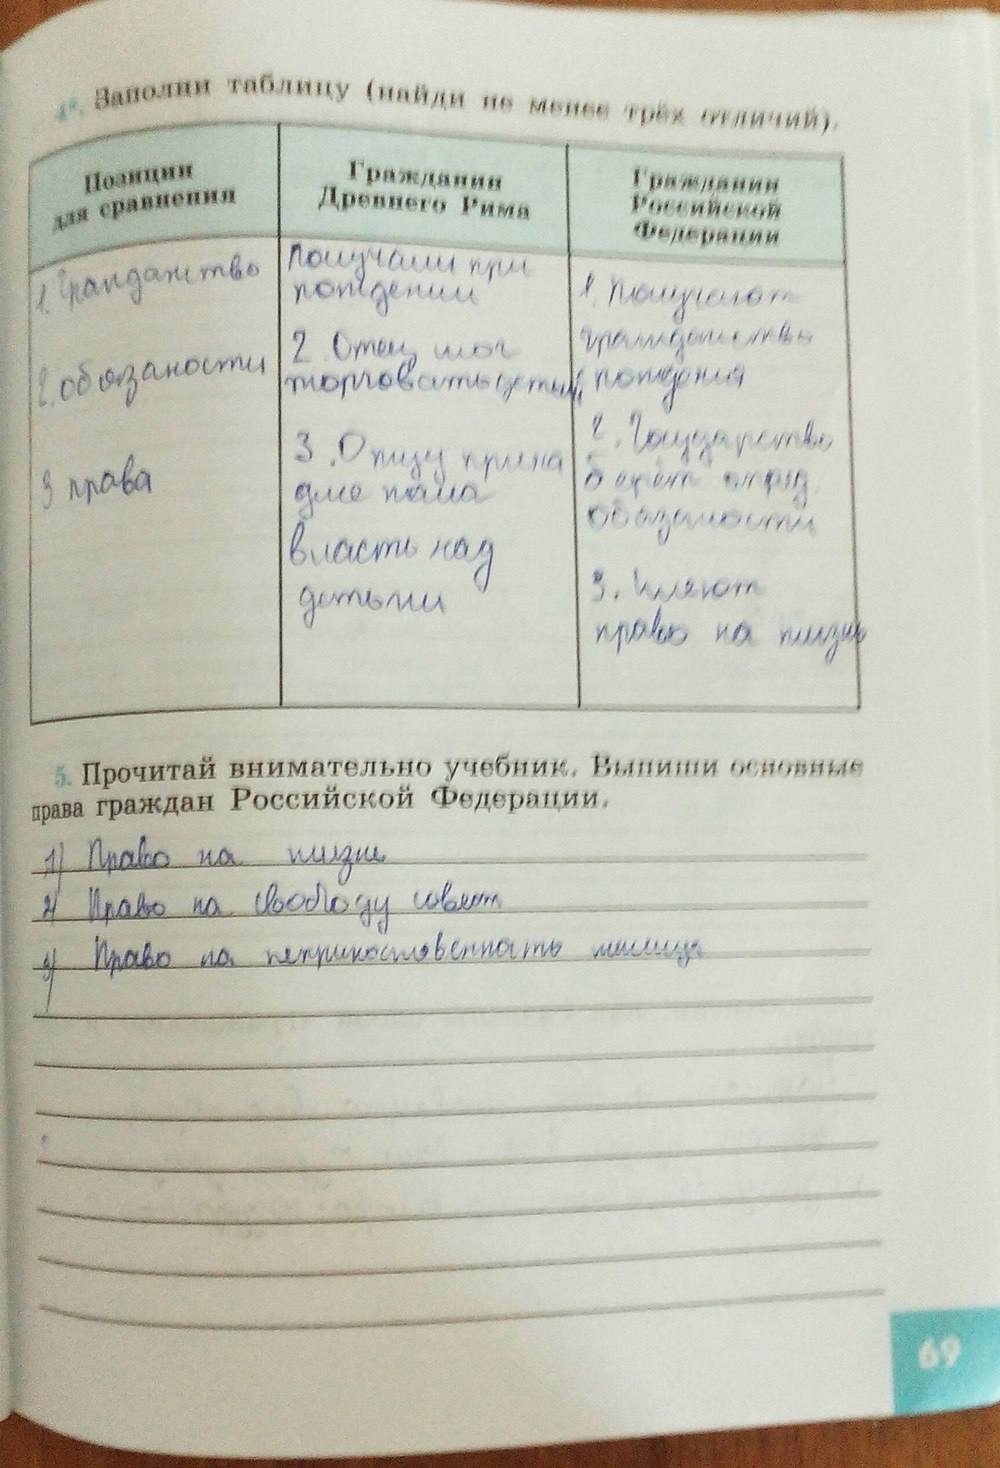 4*. Заполни таблицу (найди не менее трёх отличий).
Позиции
для сравнения
Гражданин
Древнего Рима
Гражданин
Российской
Федерации
1. Гражданство
2. обязаности
3 права
Получали при
рождении
2. Отец мог
торговать детьми
3. Отцу прина
длежала
власть над
детьми
1. Получают
гражданство
с рождения
2. Государство
берёт
обязаности
3. Имеют
право на жизнь
5. Прочитай внимательно учебник. Выпиши основные
права граждан Российской Федерации.
1) Право на жизнь
2) Право на свободу
3) Право на неприкосновенность жилища
69